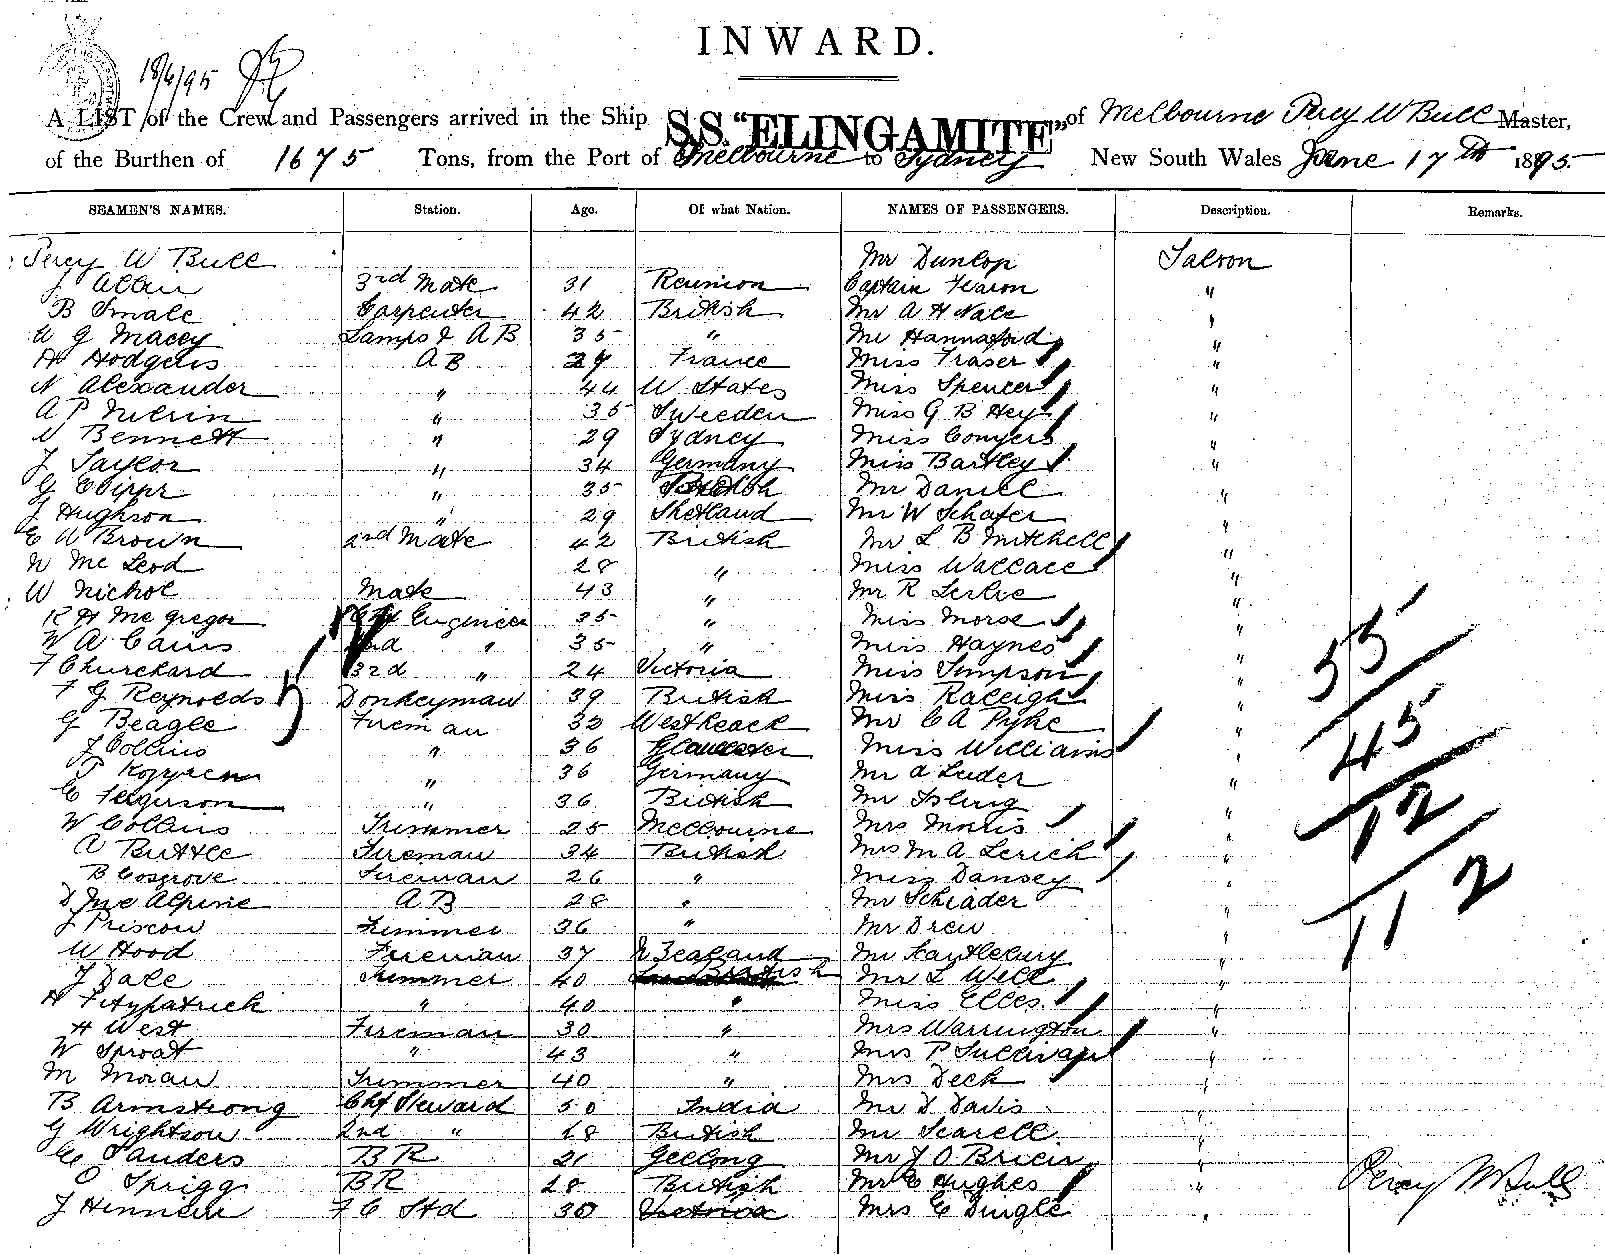 INWARD.
18/6/95
A LIST of the Crew and Passengers arrived in the Ship S.S. "ELINGAMITE" of Melbourne Percy W Bull Master,
of the Burthen of 1675 Tons, from the Port of Melbourne to Sydney New South Wales June 17th 1895.
SEAMEN'S NAMES. Station. Age. Of what Nation. NAMES OF PASSENGERS. Description. Remarks.
Percy W Bull Mr Dunlop Saloon
J Allan 3rd Mate 31 Reunion Captain "
B Smale Carpenter 42 British Mr A H "
W G Macey Lamps & AB 35 " Mr Hannaford "
H Hodgens AB 29 France Miss Fraser "
N Alexander " 44 U States Miss Spencer "
A P " 35 Sweeden Miss G B Hey "
W Bennett " 29 Sydney Miss Conyers "
J Taylor " 34 Germany Miss Bartley "
G " 35 Mr Daniell "
J Hughson " 29 Shetland Mr W Schafer "
E A Brown 2nd Mate 42 British Mr L B Mitchell "
N Mc Leod 28 " Miss Wallace "
W Nichol Mate 43 " Mr R Leslie "
R H Mc Gregor Chf Engineer 35 " Miss Morse "
W A Cairns 2nd " 35 " Miss Haynes "
F Churchard 3rd " 24 Victoria Miss Simpson "
F G Reynolds Donkeyman 39 British Miss Raleigh "
G Beagle Fireman 32 Mr C A Pyke "
J Collins " 36 Gloucester Miss Williams "
" 36 Germany Mr A Luder "
C Ferguson " 36 British Mr "
W Collins Trimmer 25 Melbourne Mrs Morris "
A Buttle Fireman 34 British Mrs M A "
B Cosgrove Fireman 26 " Miss Dansey "
D Mc Alpine AB 28 " Mr Schrader "
J Priscow Trimmer 36 " Mr Drew "
W Hood Fireman 37 N Zealand Mr "
J Dale Trimmer 40 British Mr L Well "
H Fitzpatrick " 40 " Miss Elles "
H West Fireman 30 " Mrs Warrington "
W Sproat " 43 " Mrs P Sullivan "
M Moran Trimmer 40 " Mrs Deck "
B Armstrong Chf Steward 50 India Mr D Davis "
G Wrightson 2nd " 18 British Mr Scarell "
C Sanders BR 21 Geelong Mr J O Brien "
C Sprigg BR 28 British Mr C Hughes "
J F C Std 30 Victoria Mrs C Dingle "
55
45
12
112
Percy W Bull